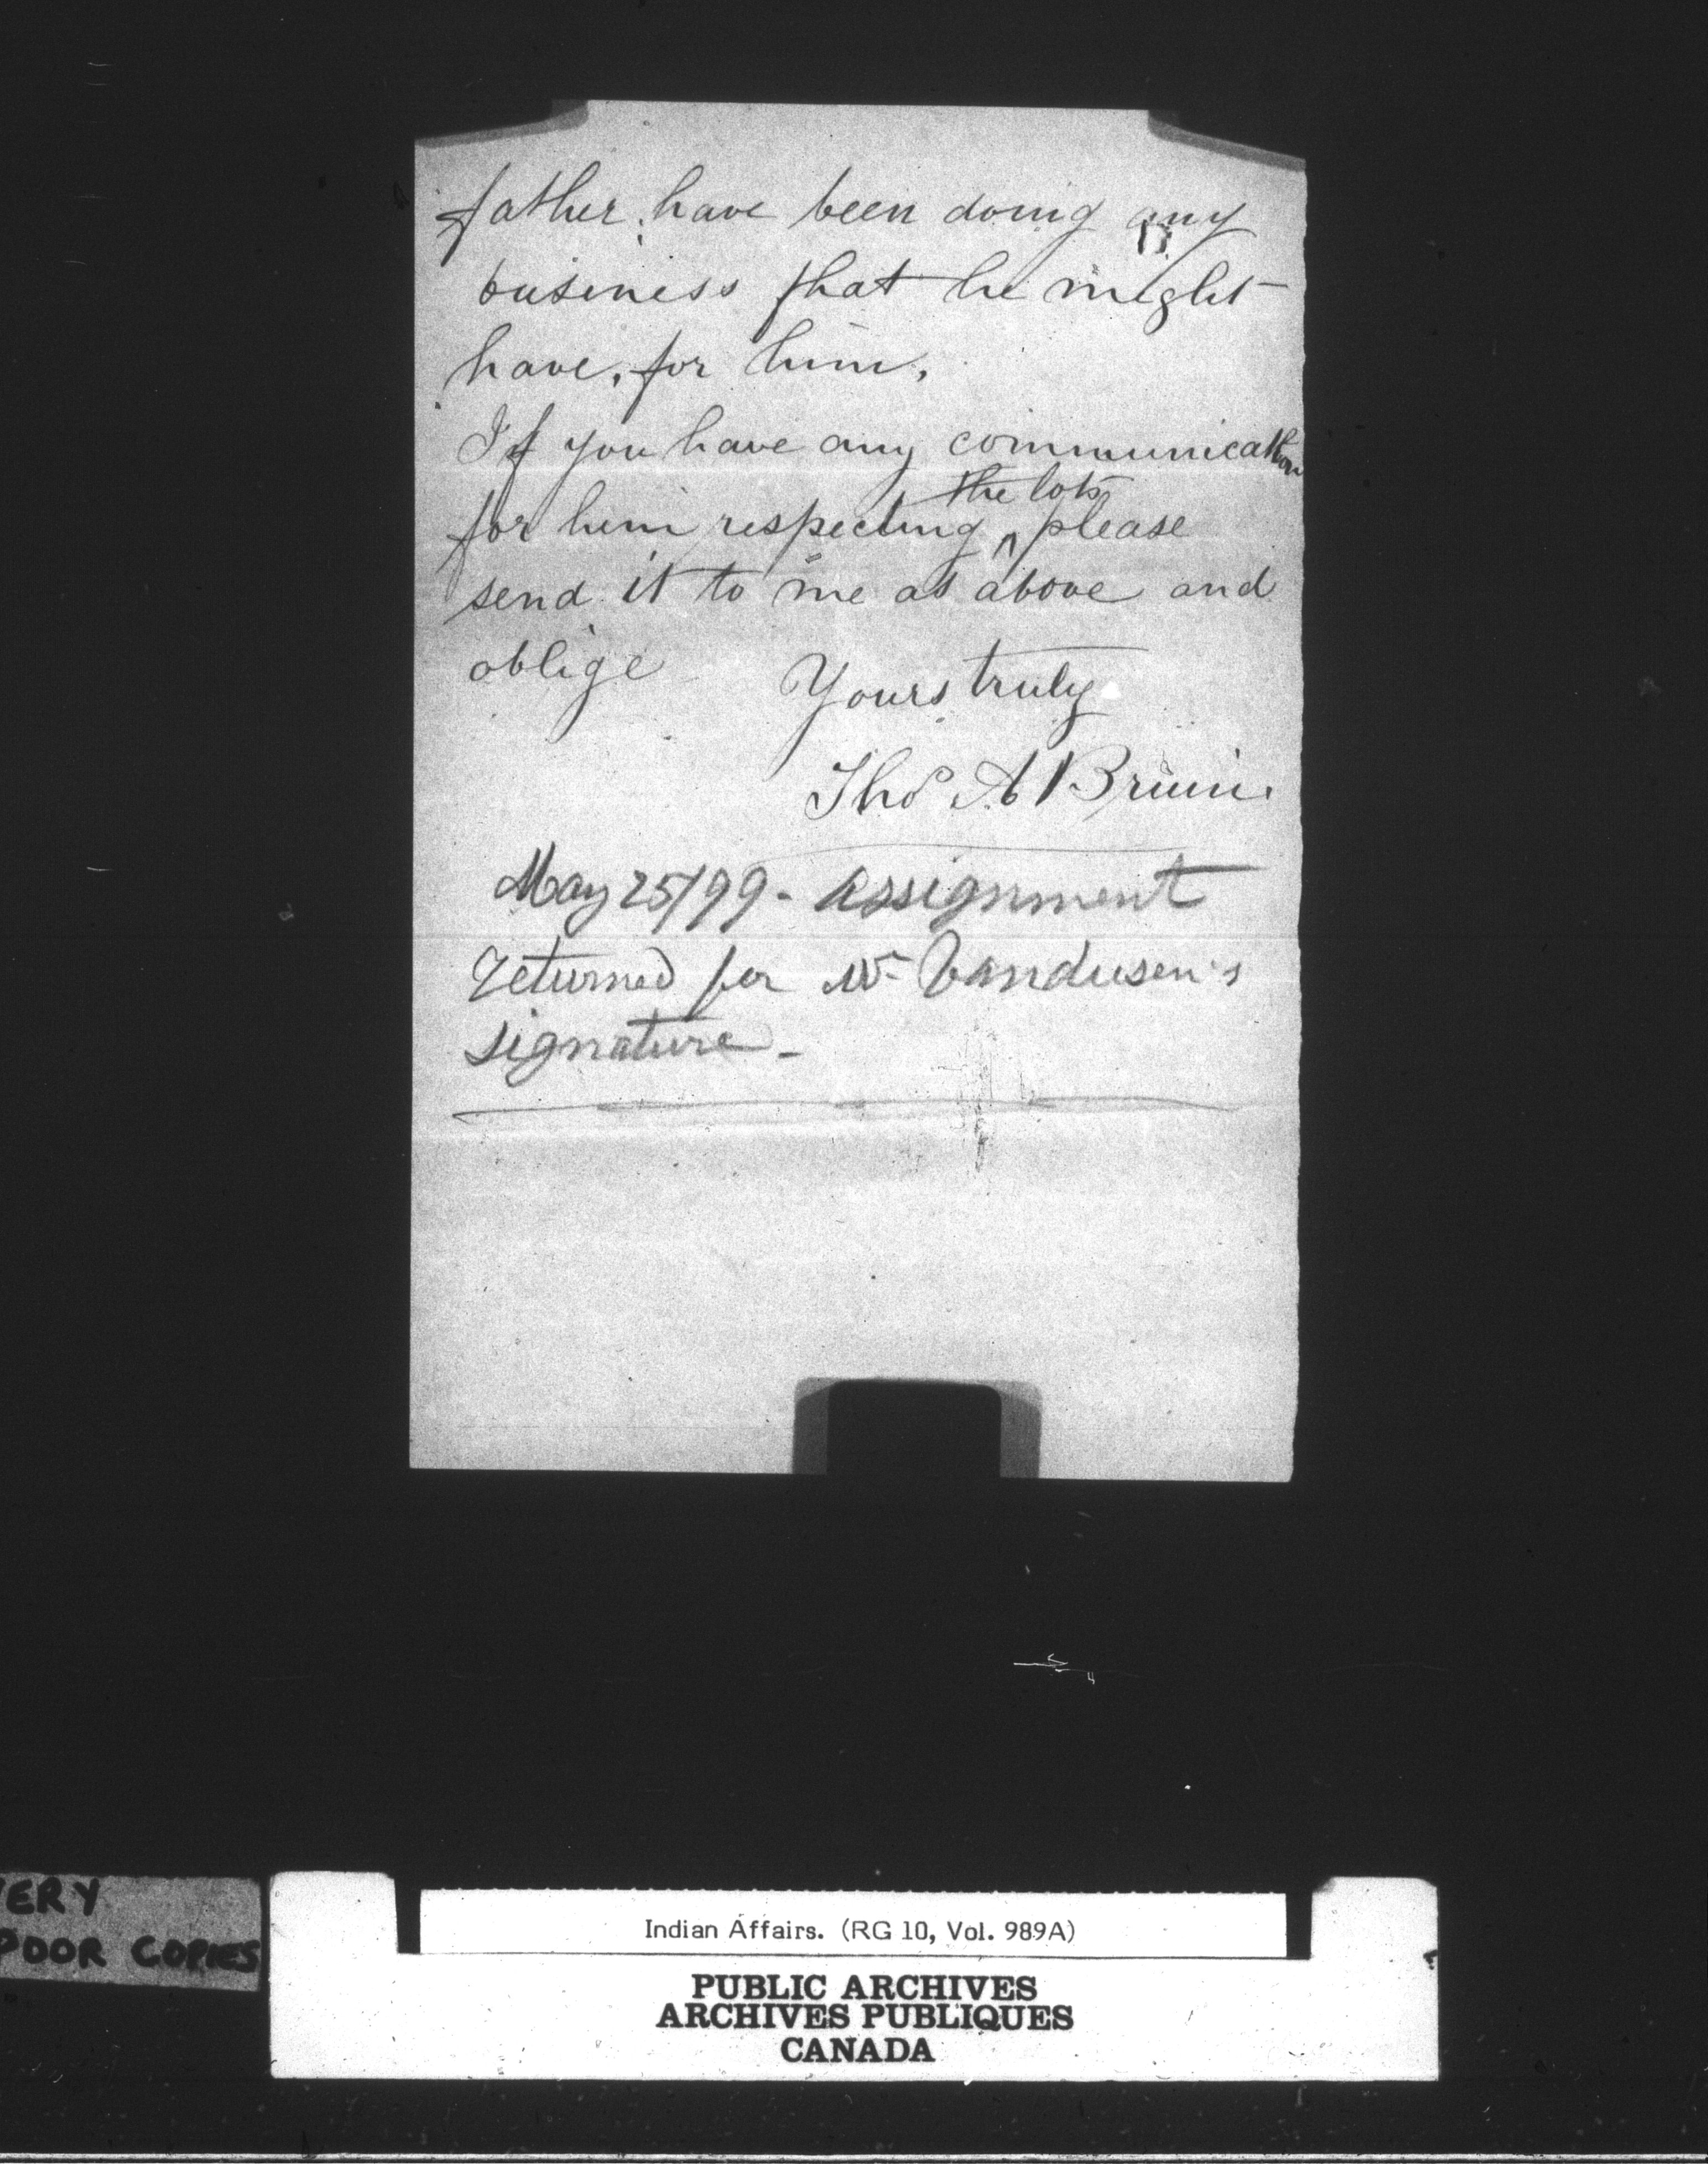 father have been doing any
business that he might
have, for him,
If you have any communication
the lots
for him respecting ^ please
send it to me as above and
oblige
Yours truly
Thos A Bruin
May 25/99 - Assignment
returned for W. Vandusen's
signature -
VERY
POOR COPIES
Indian Affairs. (RG 10, Vol. 989A)
PUBLIC ARCHIVES
ARCHIVES PUBLIQUES
CANADA